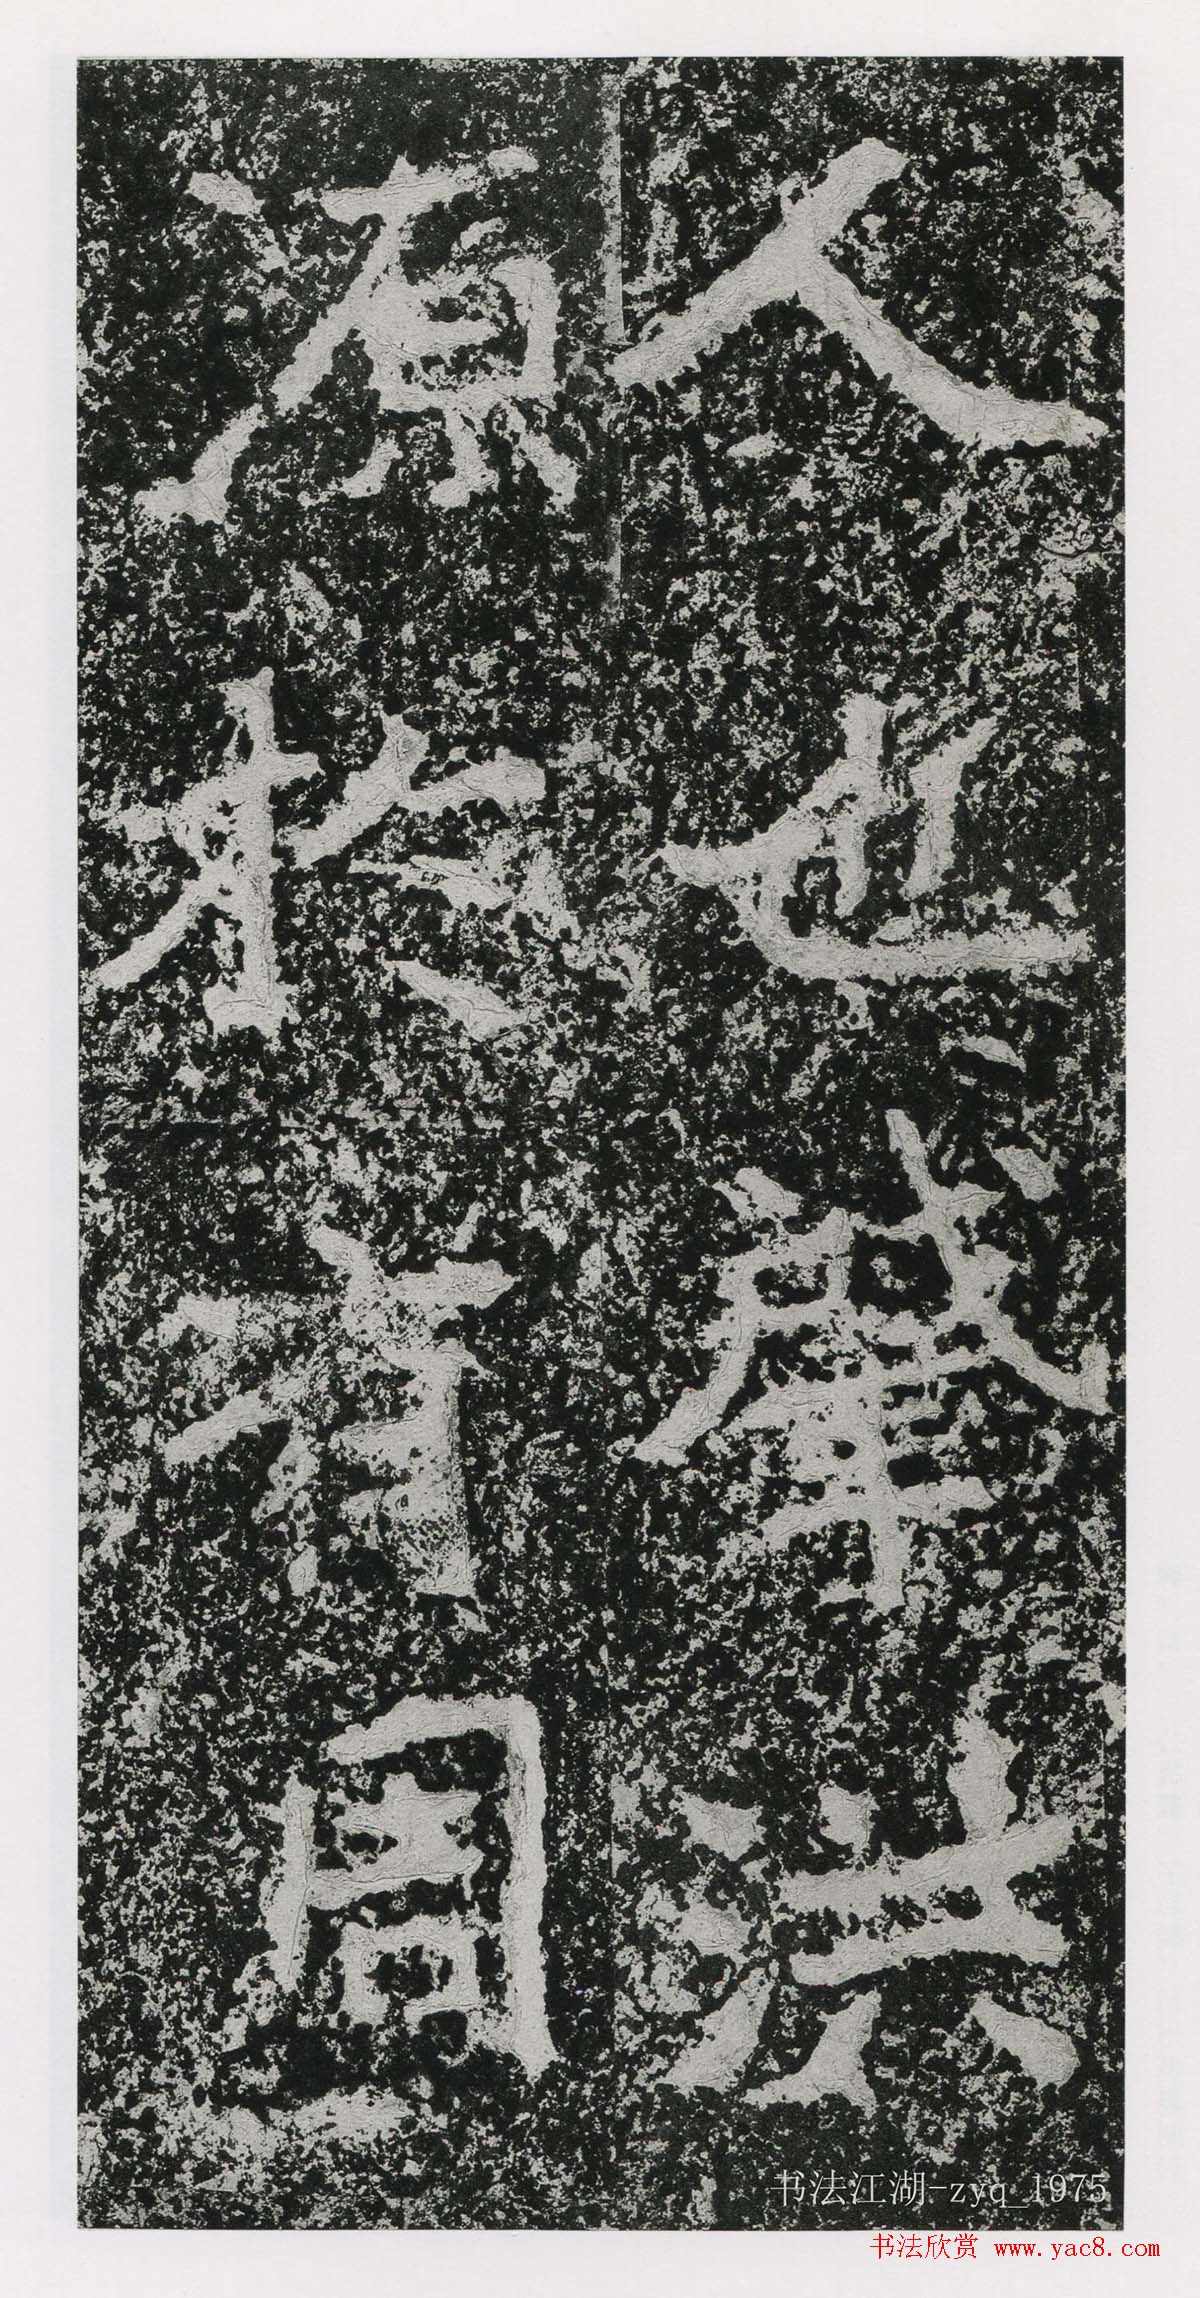 人也肇洪
源於有周
书法江湖-zyq_1975
书法欣赏 www.yac8.com